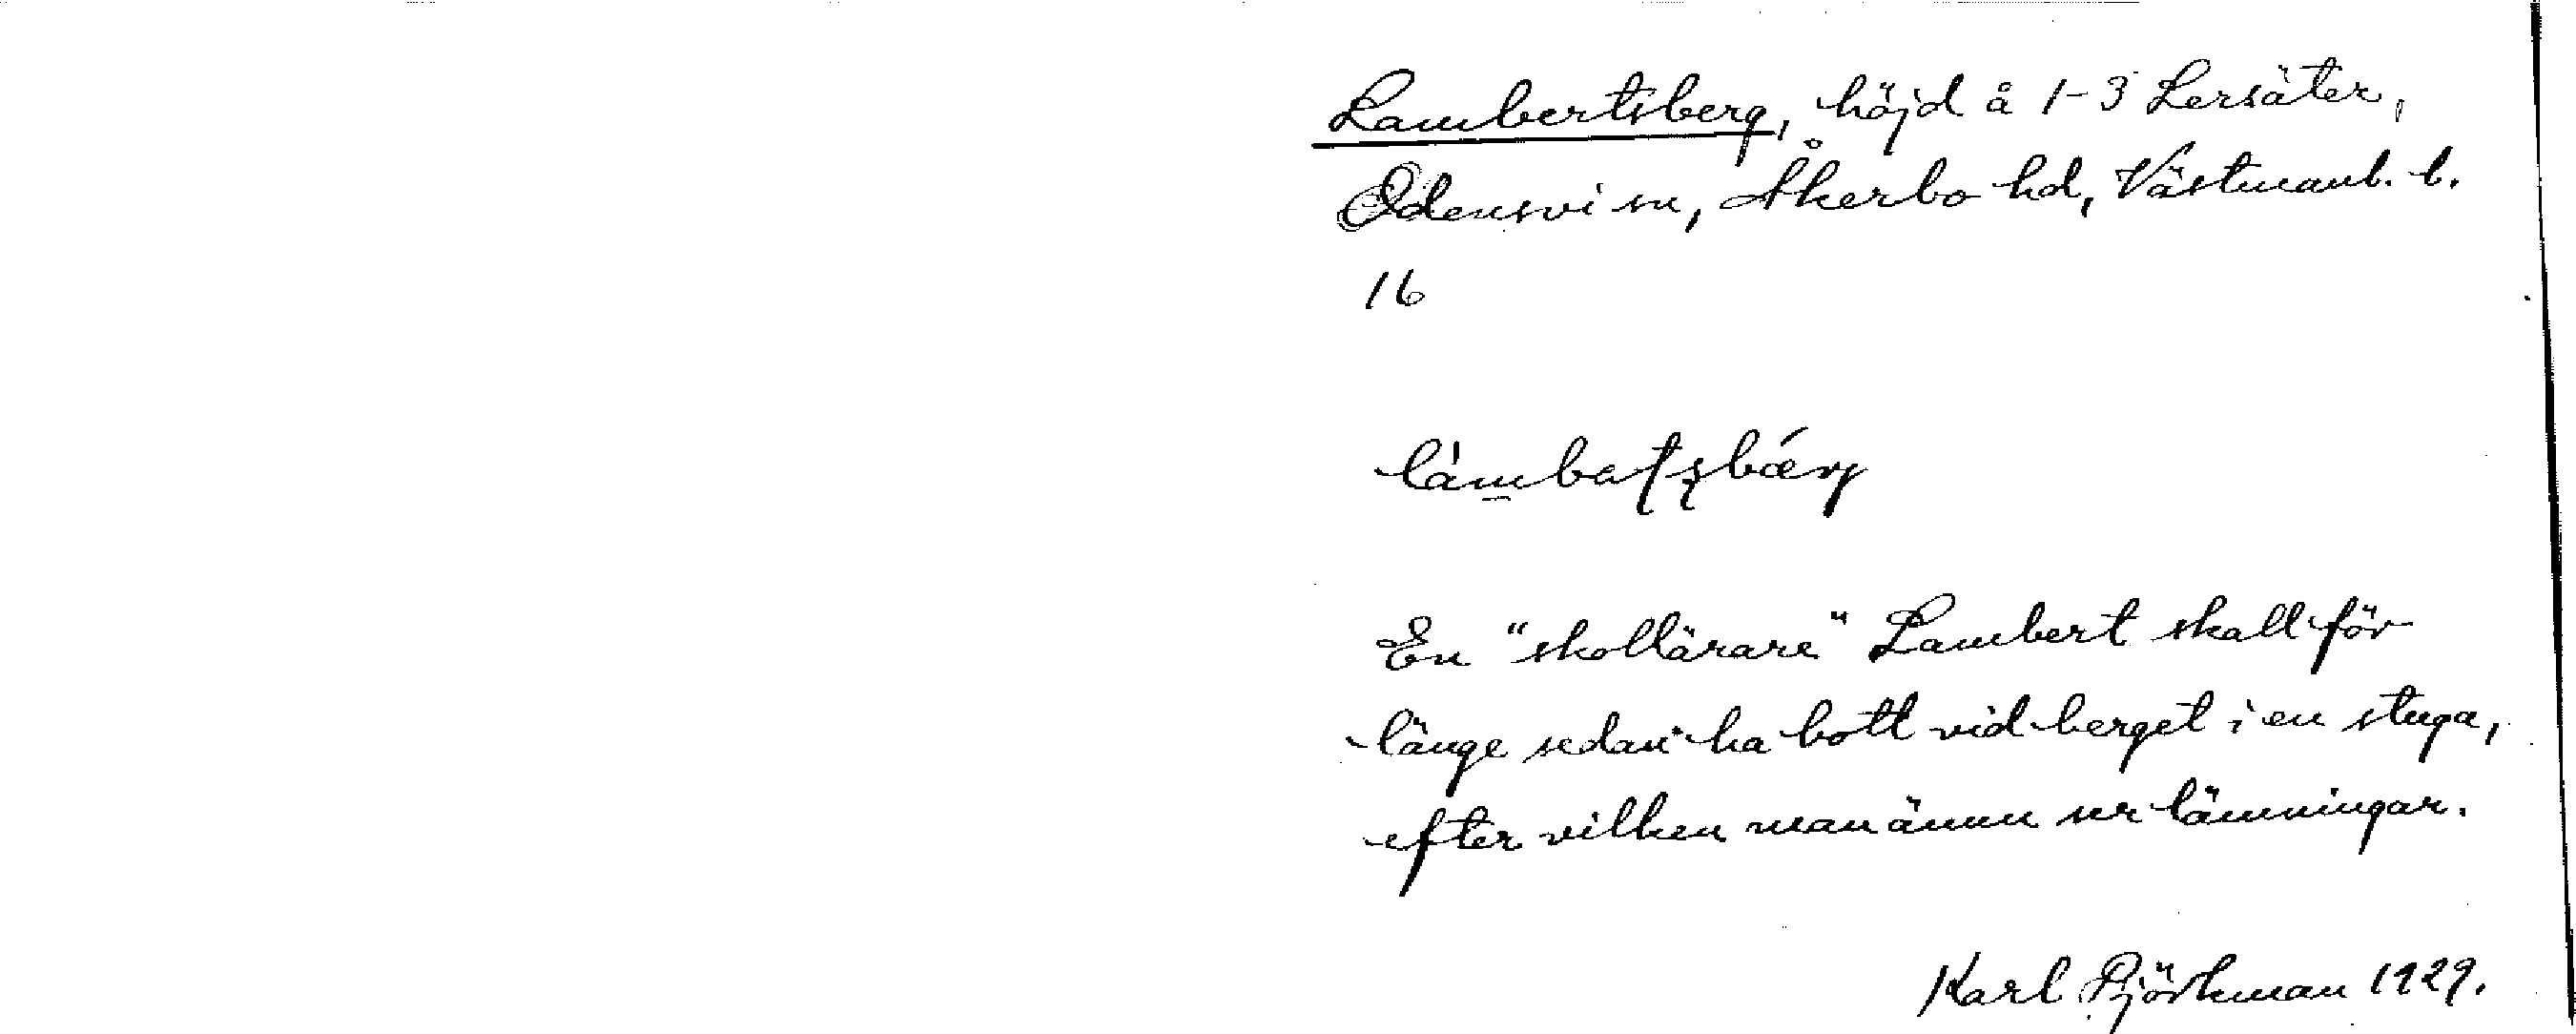 Lambertsberg, höjd å 1-3 Lersäter,
Odensvi sn, Åkerbo hd, Västmanl. l.
16
En "skollärare" Lambert skall för
länge sedan ha bott vid berget i en stuga,
efter vilken man ännu ser lämningar.
Karl Björkman 1929.